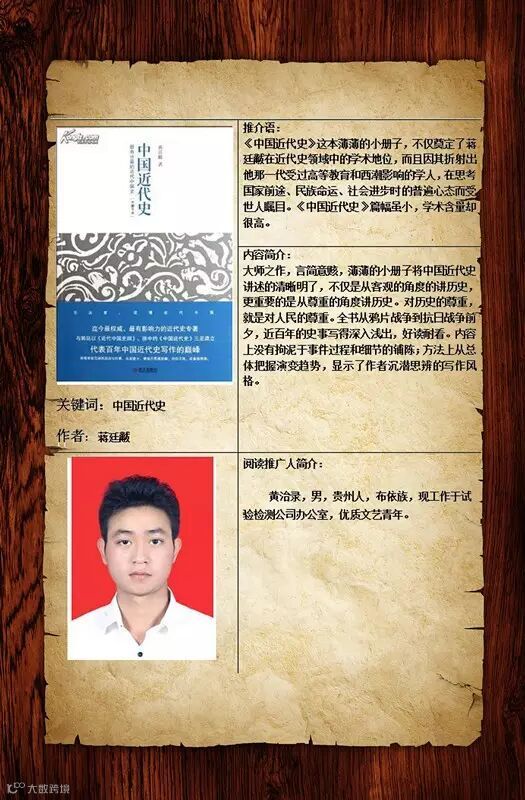 推介语：
《中国近代史》这本薄薄的小册子，不仅奠定了蒋
廷黻在近代史领域中的学术地位，而且因其折射出
他那一代受过高等教育和西潮影响的学人，在思考
国家前途、民族命运、社会进步时的普遍心态而受
世人瞩目。《中国近代史》篇幅虽小，学术含量却
很高。
中国近代史
蒋廷黻 著
迄今最权威、最有影响力的近代史专著
代表百年中国近代史写作的巅峰
内容简介：
大师之作，言简意赅，薄薄的小册子将中国近代史
讲述的清晰明了，不仅是从客观的角度的讲历史，
更重要的是从尊重的角度讲历史。对历史的尊重，
就是对人民的尊重。全书从鸦片战争到抗日战争前
夕，近百年的史事写得深入浅出，好读耐看。内容
上没有拘泥于事件过程和细节的铺陈；方法上从总
体把握演变趋势，显示了作者沉潜思辨的写作风
格。
关键词：中国近代史
作者：蒋廷黻
阅读推广人简介：
黄治录，男，贵州人，布依族，现工作于试
验检测公司办公室，优质文艺青年。
大数跨境